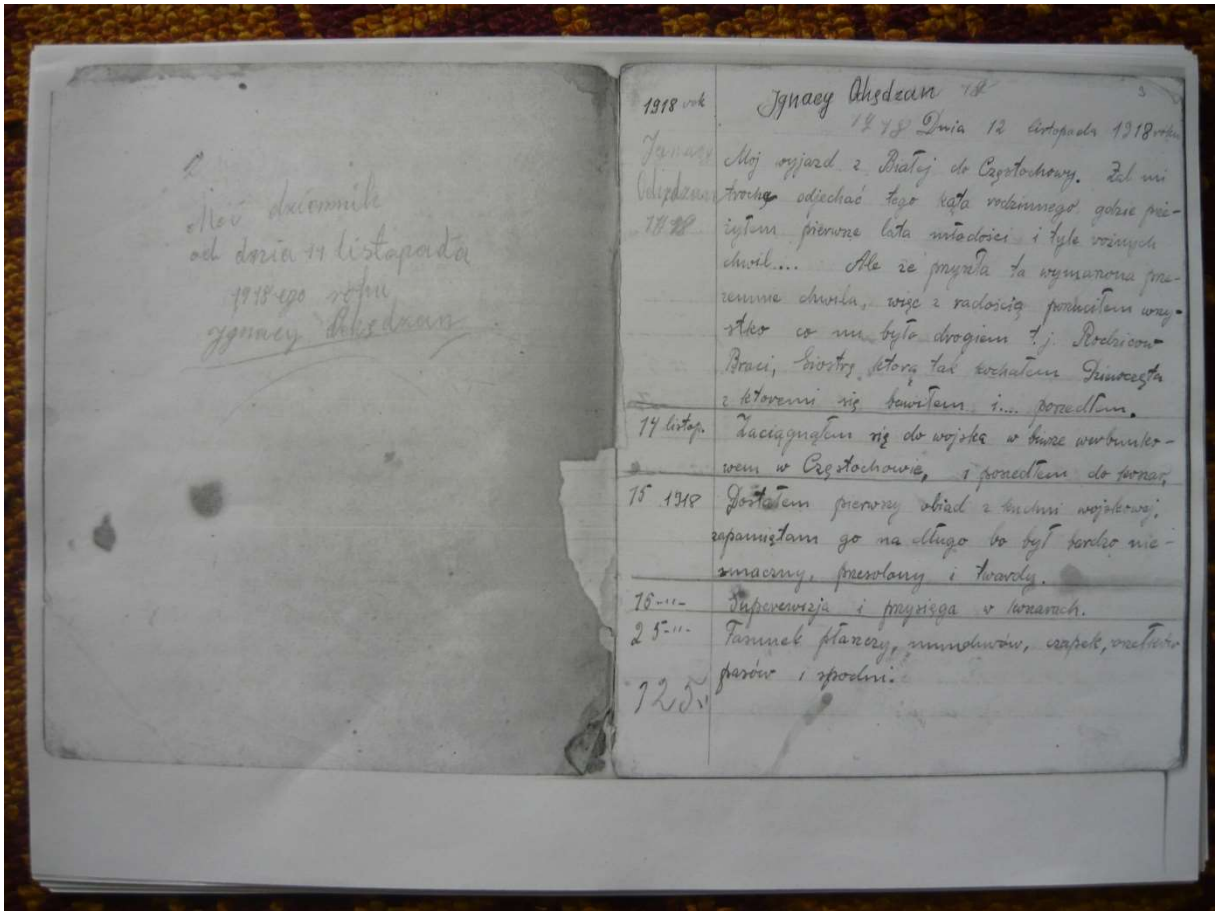 Mój dziennik
od dnia 14 listopada
1918-ego roku
Ignacy
3
1918 rok
Ignacy 18
1918 Dnia 12 listopada 1918 roku
Ignacy
1918
Mój wyjazd z Białej do Częstochowy. Żal mi
trochę odjechać tego kąta rodzinnego gdzie prze-
żyłem pierwsze lata młodości i tyle różnych
chwil.... Ale że przyszła ta wymarzona prze-
zemnie chwila, więc z radością porzuciłem wszy-
stko co mi było drogiem t.j. Rodziców
Braci, Siostrę którą tak kochałem Dziewczęta
z któremi się bawiłem i.... poszedłem.
14 listop. Zaciągnąłem się do wojska w biurze werbunko-
wem w Częstochowie, i poszedłem do koszar.
15 1918 Dostałem pierwszy obiad z kuchni wojskowej,
zapamiętam go na długo bo był bardzo nie-
smaczny, przesolony i twardy.
16-"- Superewizja i przysięga w koszarach.
25-"- Fasunek płaszczy, mundurów, czapek,
pasów i spodni.
125